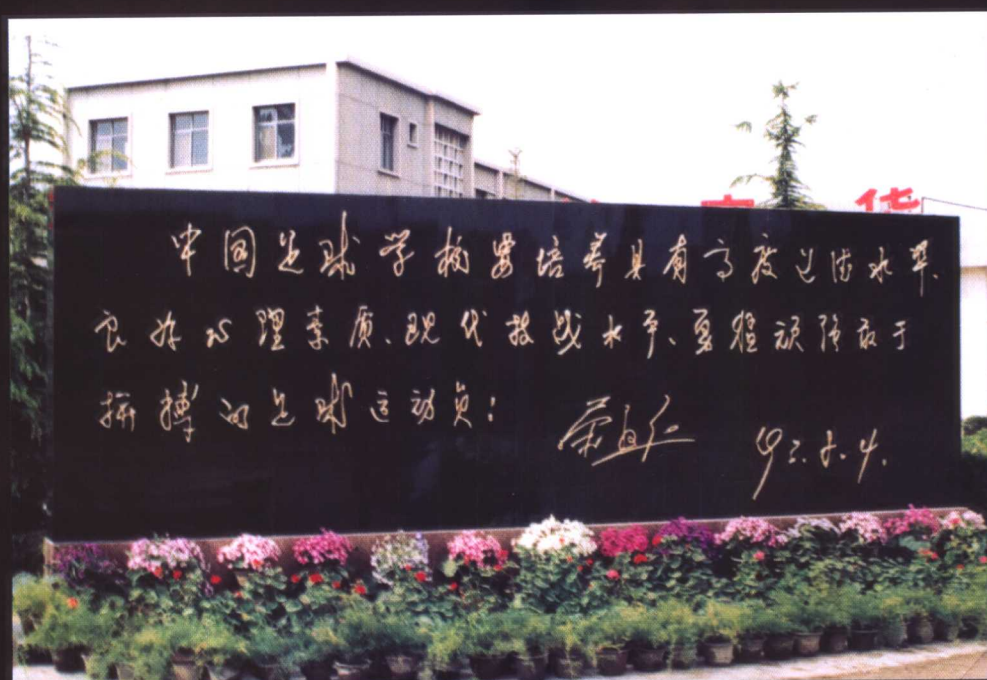 华
中国足球学校要培养具有高度道德水平、
良好心理素质、现代技战水平、勇猛顽强敢于
拼搏的足球运动员！
92.5.4.